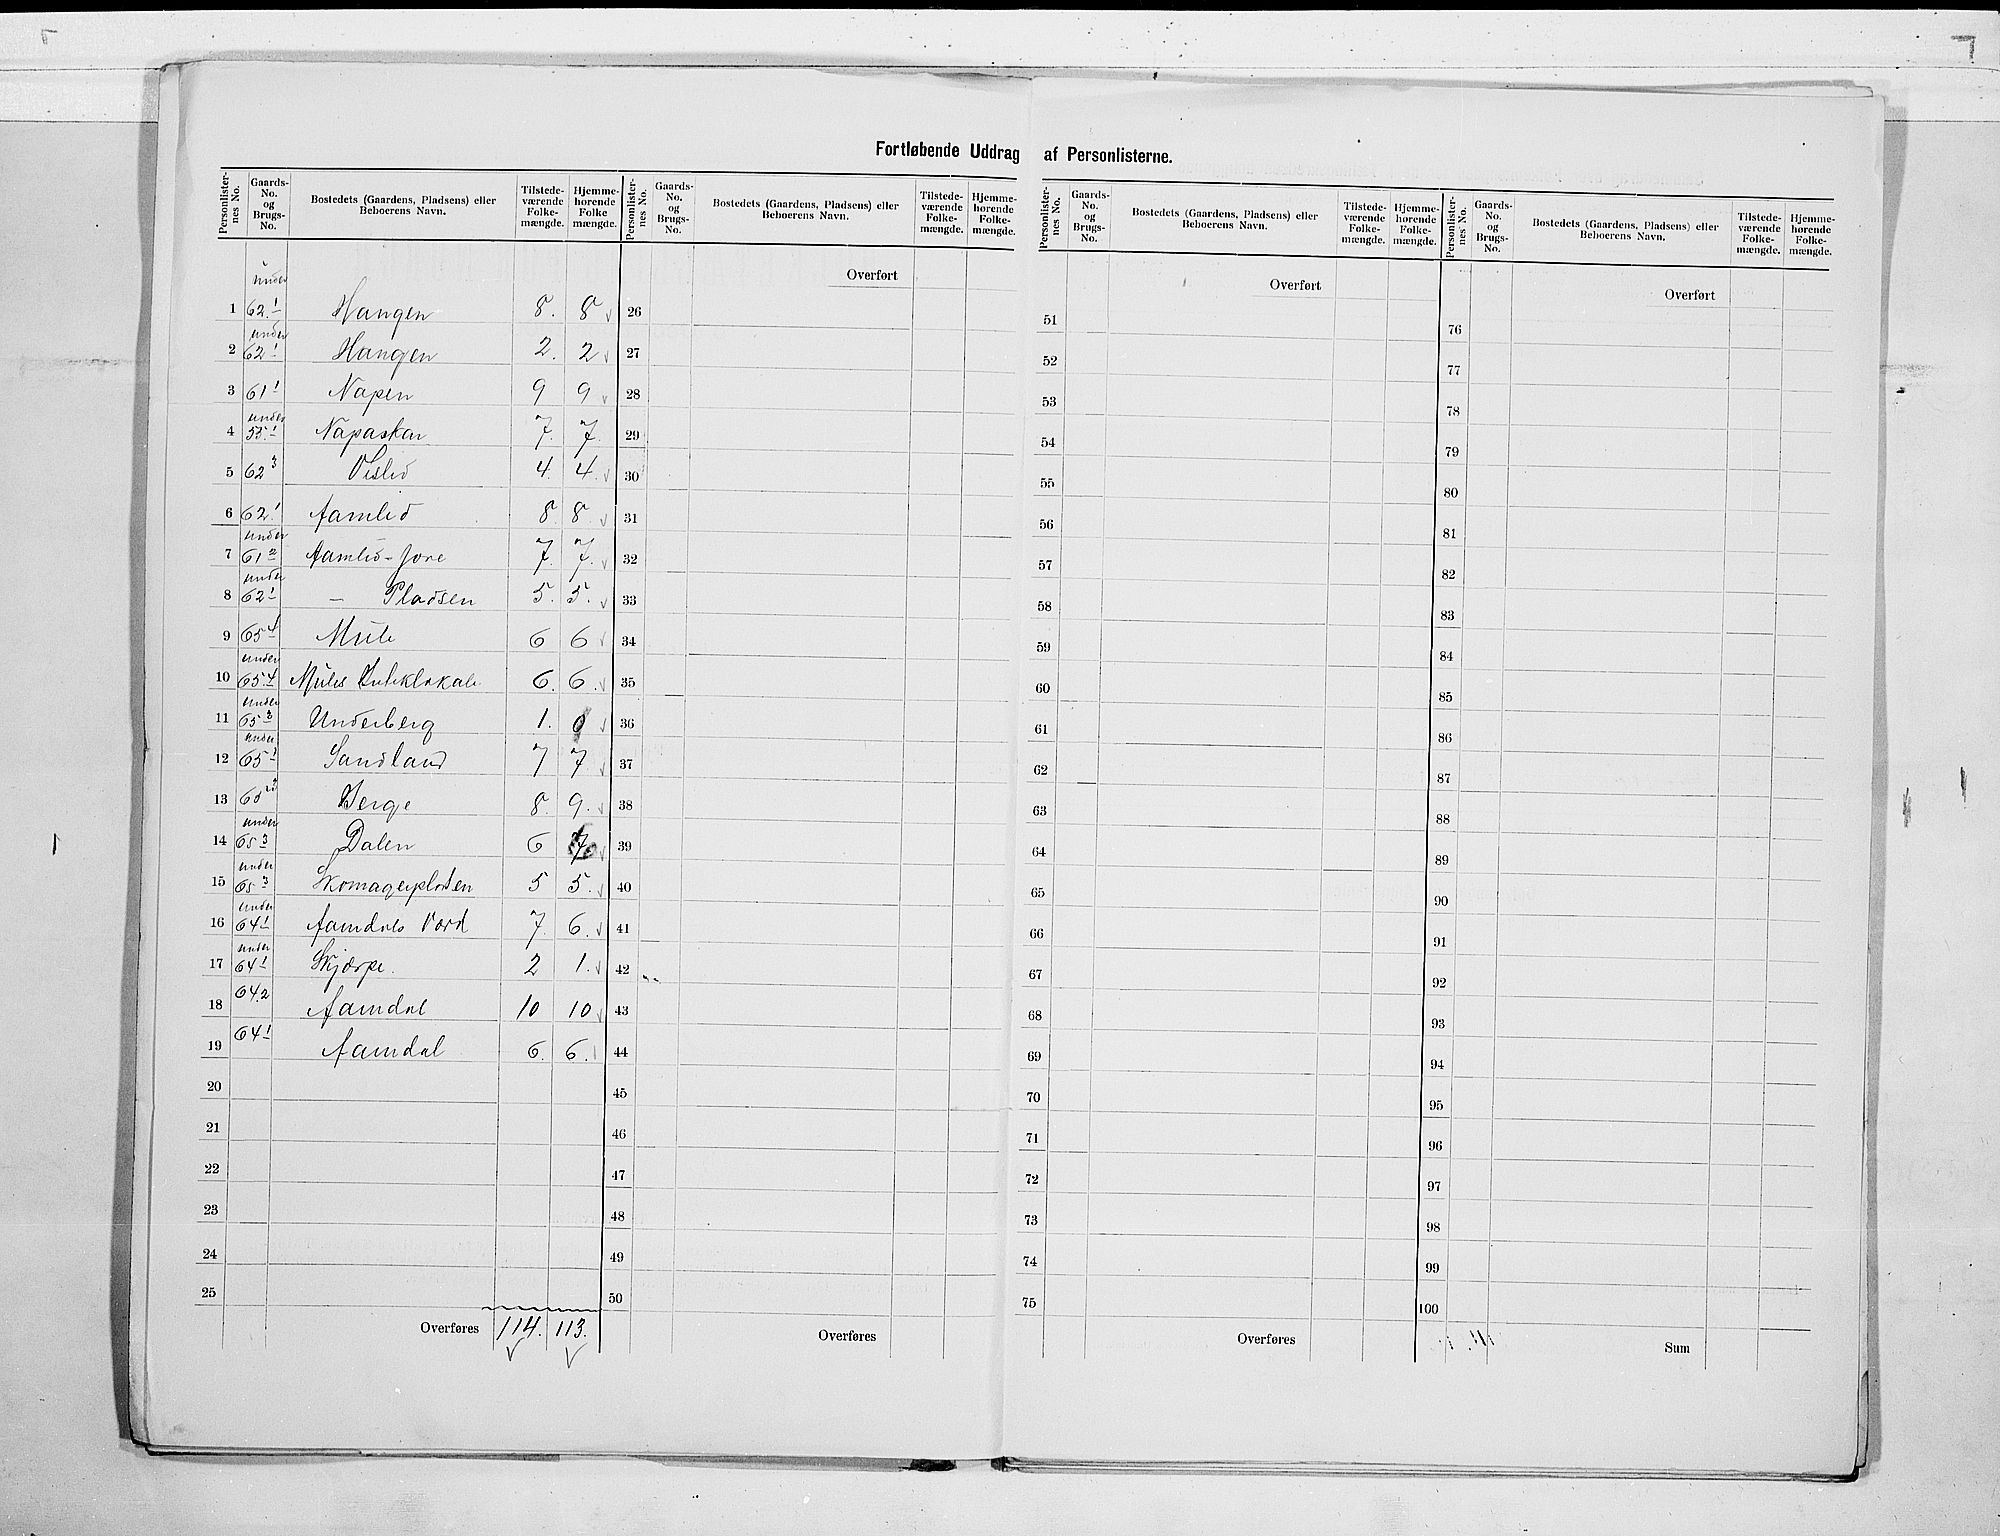 Fortløbende Uddrag af Personlisterne.
Personlister-nes No. Gaards-No. og Brugs-No. Bostedets (Gaardens, Pladsens) eller Beboerens Navn. Tilstede-værende Folke-mængde. Hjemme-hørende Folke mængde.
Personlister-nes No. Gaards-No. og Brugs-No. Bostedets (Gaardens, Pladsens) eller Beboerens Navn. Tilstede-værende Folke-mængde. Hjemme-hørende Folke-mængde.
Personlister-nes No. Gaards-No. og Brugs-No. Bostedets (Gaardens, Pladsens) eller Beboerens Navn. Tilstede-værende Folke-mængde. Hjemme-hørende Folke-mængde.
Personlister-nes No. Gaards-No. og Brugs-No. Bostedets (Gaardens, Pladsens) eller Beboerens Navn. Tilstede-værende Folke-mængde. Hjemme-hørende Folke-mængde.
under
1 62.1 Haugen 8. 8
under
2 62.1 Haugen 2. 2
3 61 1 Napen 9 9
under
4 55.1 Napaskar 7. 7.
5 62 3 Vislid 4. 4.
6 62.1 Aamlid 8. 8.
under
7 61 2 Aamlid-Jore 7. 7.
under
8 62 1 – Pladsen 5. 5.
9 65 4 Mule 6 6
under
10 65 4 Mules 6. 6.
under
11 65 3 Underberg 1. 0
under
12 65 1 Sandland 7 7
13 65 3 Berge 8. 9.
under
14 65 3 Dalen 6 7
under
15 65 3 Skomagerpladsen 5 5.
under
16 64 1 Aamdals Værd 7. 6.
under
17 64 1 Skjærpe. 2 1.
18 64.2 Aamdal 10 10
19 64 1 Aamdal 6. 6.
20
21
22
23
24
25
Overføres 114. 113.
Overført
26
27
28
29
30
31
32
33
34
35
36
37
38
39
40
41
42
43
44
45
46
47
48
49
50
Overføres
Overført
51
52
53
54
55
56
57
58
59
60
61
62
63
64
65
66
67
68
69
70
71
72
73
74
75
Overføres
Overført
76
77
78
79
80
81
82
83
84
85
86
87
88
89
90
91
92
93
94
95
96
97
98
99
100
Sum